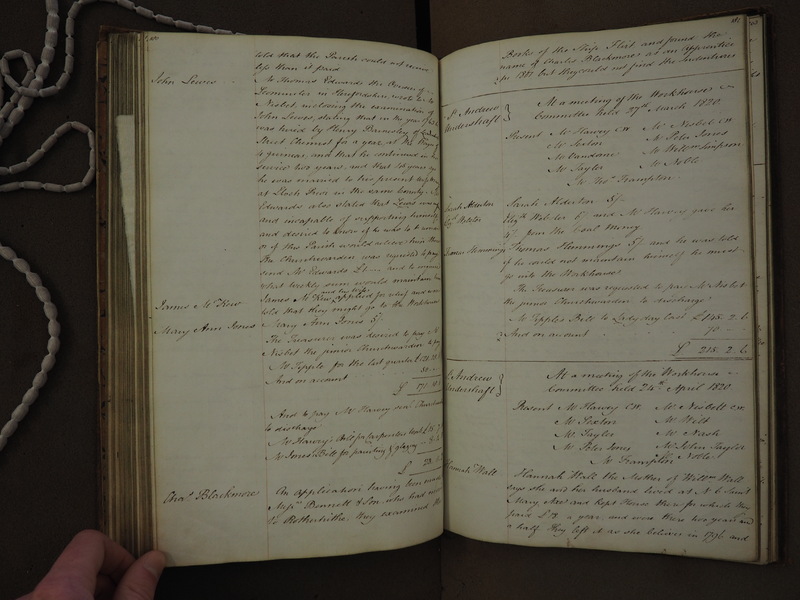 told that the Parish could not receive
less than it paid
John Lewis
Mr Thomas Edwards the Overseer of
Leominster in Herefordshire wrote to Mr
Nisbet inclosing the examination of
John Lewis, stating that in the year of
was hired by Henry Barnsley of
Street Chemist for a year at the Wages of
4 guineas, and that he continued in
Service two years, and that 14 years
he was married to his present wife
at in the same County. Mr
Edwards also stated that Lewis was
and incapable of supporting himself
and desired to know if he was to
or if this Parish would relieve him there
The Churchwarden was requested to
send Mr Edwards £1 and to enquire
what weekly sum would maintain
James McKew
James McKew and his wife applied for relief and were
told that they might go to the Workhouse
Mary Ann Jones
Mary Ann Jones 5/-
The Treasurer was desired to pay Mr
Nisbet the junior Churchwarden to pay
Mr Tipple for the last quarter £121
And on account 50
£ 171
And to pay Mr Harvey sen. Churchwarden
to discharge
Mr Harvey's Bill for Carpenters work £
Mr Jones's Bill for painting & glazing
£ 28
Chas. Blackmore
An application having been made
Messrs Bennett & Son who had
to Rotherhithe, they examined the
Books of the Ship Fleet and found the
name of Charles Blackmore as an Apprentice
for 1811 but they could not find the Indentures
St Andrew
Undershaft
At a meeting of the Workhouse
Committee held 27th March 1820
Present Mr Harvey CW Mr Nisbet CW
Mr Sexton Mr Peter Jones
Mr Willm Simpson
Mr Taylor Mr Noble
Mr Thos Frampton
Sarah Alderton
Sarah Alderton 5/-
Elizth Webster
Elizth Webster 6/ and Mr Harvey gave her
4/- from the Coal Money
Thomas Flemmings
Thomas Flemmings 5/ and he was told
if he could not maintain himself he must
go into the Workhouse
The Treasurer was requested to pay Mr Nisbet
the junior Churchwarden to discharge
Mr Tipples Bill to Ladyday last £145. 2. 6
And on account 70 –
£ 215. 2. 6
St Andrew
Undershaft
At a meeting of the Workhouse
Committee held 24th April 1820
Present Mr Harvey CW. Mr Nisbett CW
Mr Sexton Mr Webb
Mr Taylor Mr Nash
Mr Peter Jones Mr John Taylor
Mr Frampton Noble
Hannah Wall
Hannah Wall the Mother of Willm Wall
says she and her husband lived at N 6 Saint
Mary Axe and kept House there for which they
paid £18 a year, and were there two years and
a half they left it as she believes in 1796 and